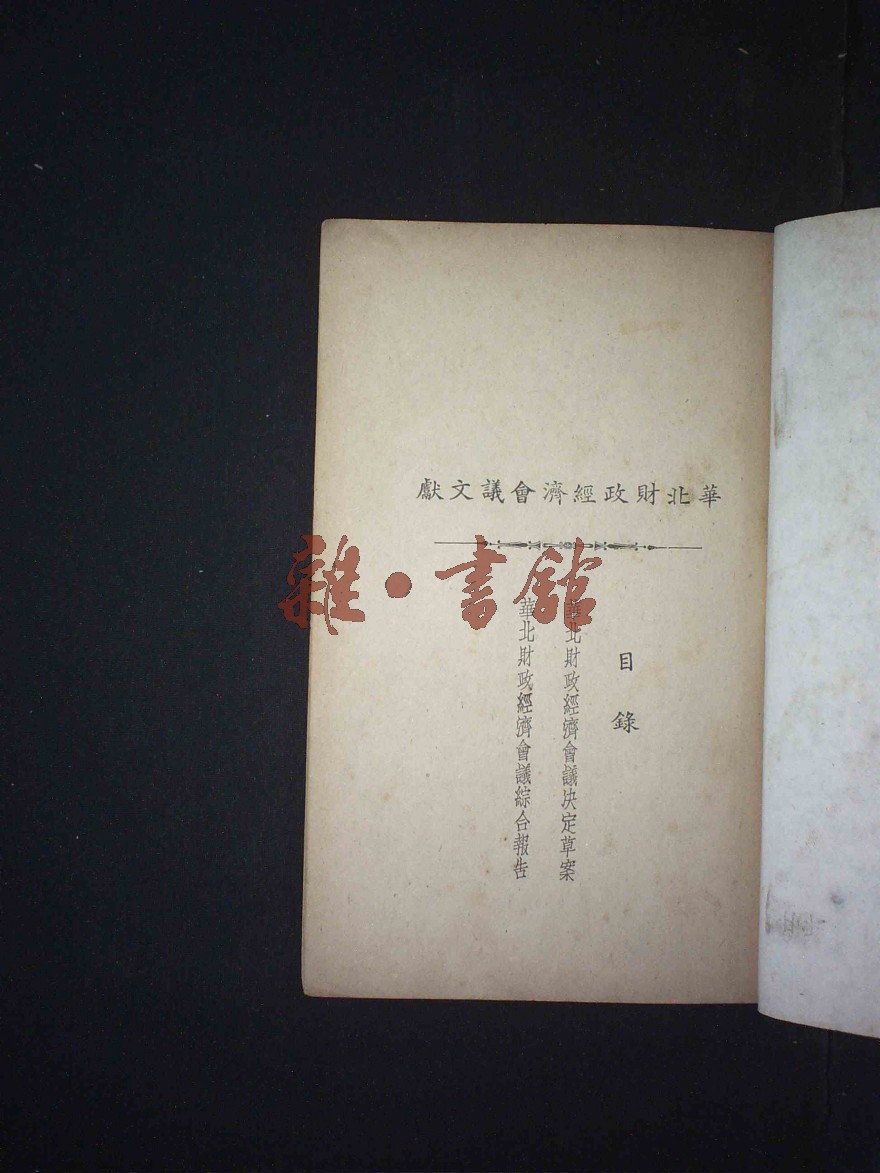 華北財政經濟會議文獻
目錄
華北財政經濟會議決定草案
華北財政經濟會議綜合報告
雜·書館